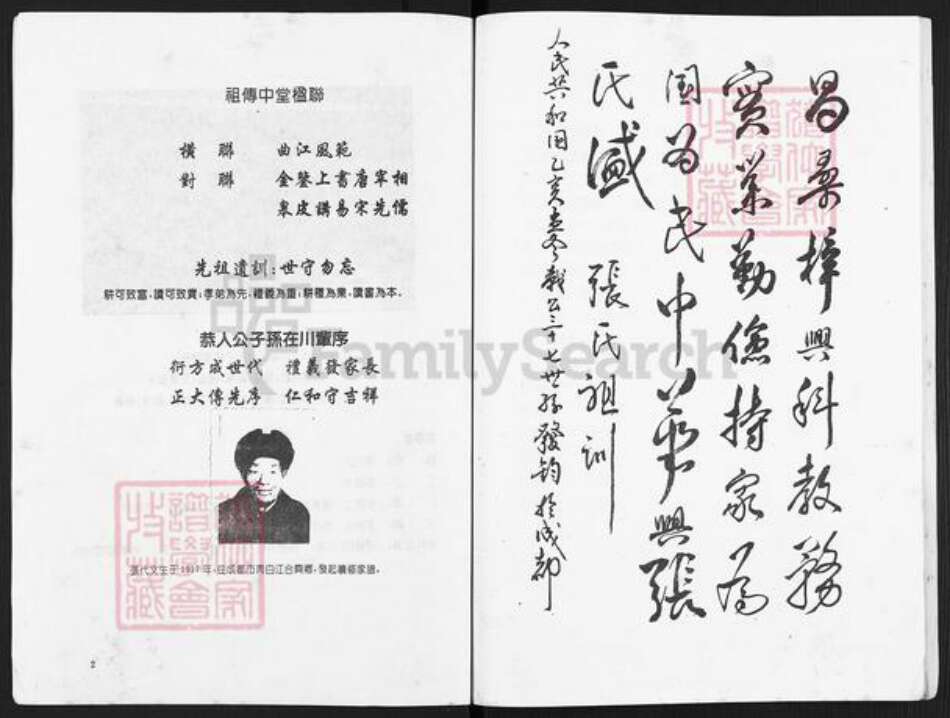 祖傳中堂楹聯
橫 聯 曲江風範
對 聯 金鑒上書唐宰相
皋皮講易宋先儒
先祖遺訓:世守勿忘
耕可致富,讀可致貴;孝弟為先,禮義為重;耕種為業,讀書為本。
恭人公子孫在川輩序
衍方成世代 禮義發家長
正大傳先序 仁和守吉祥
張代文生于1917年,住成都市青白江合興鄉,發起續修家譜。
2
昌桑梓興科教務
實業勤儉持家為
國為民中華興張
氏盛 張氏祖訓
人民共和國乙亥 三十七世孫發鈞於成都
FamilySearch